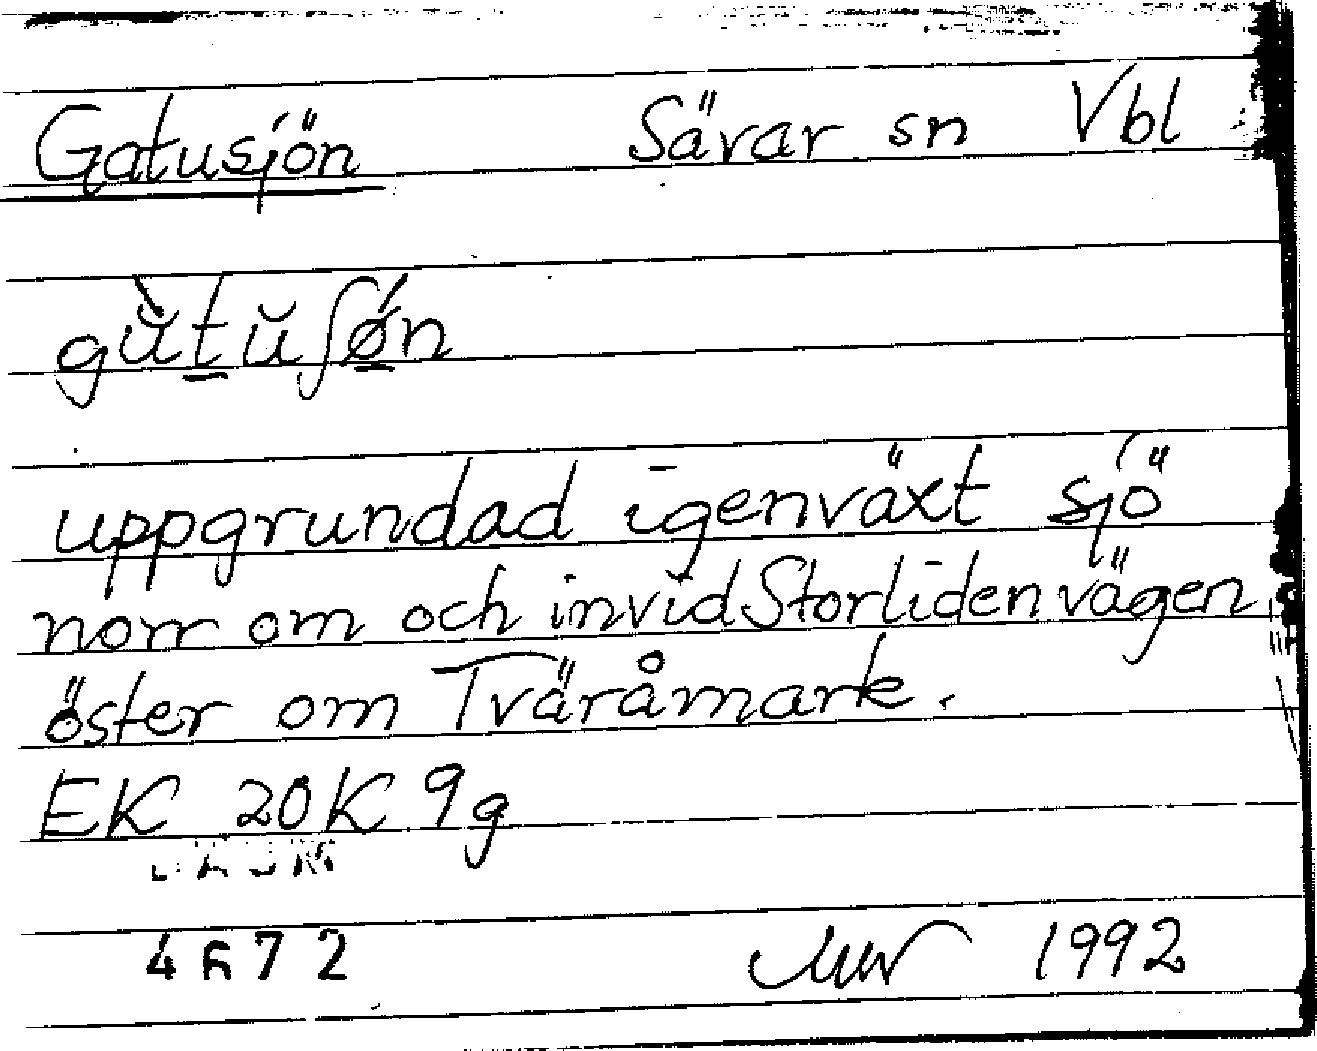 Gatusjön Sävar sn Vbl
gùtŭʃǿn
uppgrundad igenväxt sjö
norr om och invid Storlidenvägen
öster om Tväråmark.
EK 20K 9g
4672 1992